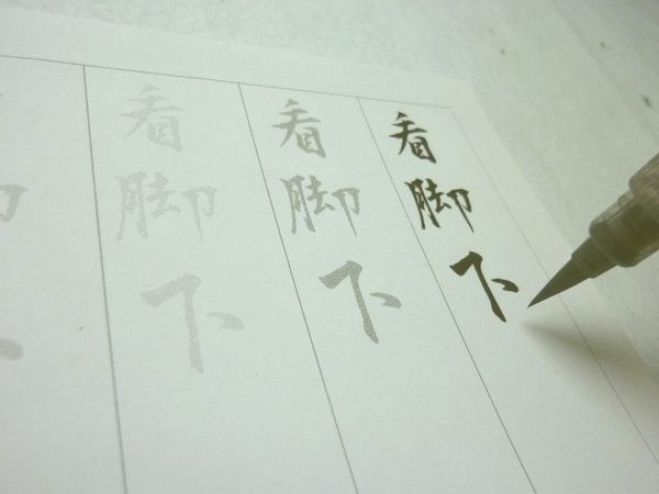 看脚下
看脚下
看脚下